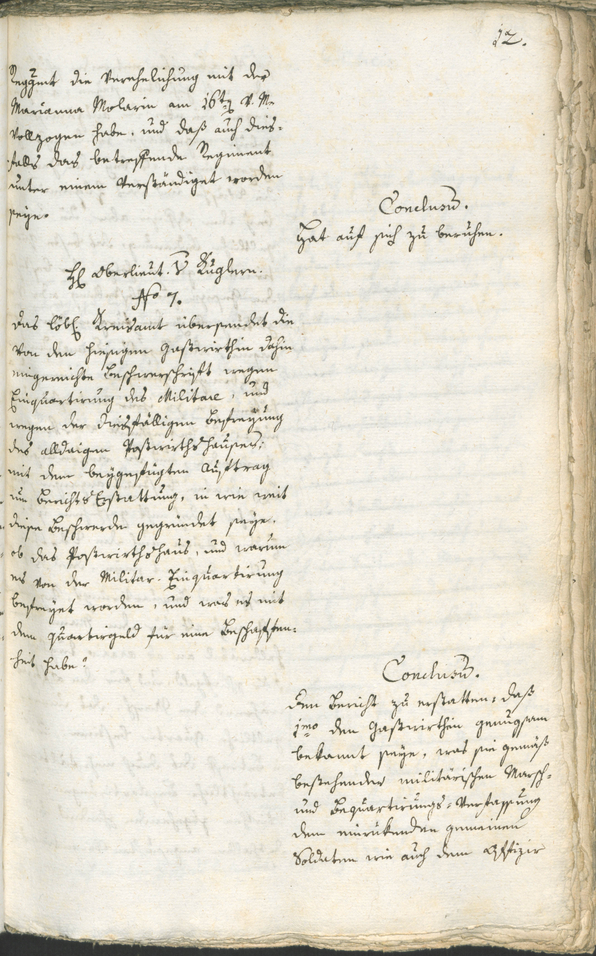 12.
Reggmt die Verehelichung mit der
Marianna Molarin am 16ten v. M.
vollzogen habe, und daß auch dies-
falls das betreffende Regiment
unter einem verständiget worden
seye.
Conclusum.
Hat auf sich zu beruhen.
H Oberlieut. v Kuglern.
No 7.
Das löbl. Kreisamt übersendet die
von den hiesigen Gastwirthen dahin
eingereichte Beschwerschrift wegen
Einquartirung des Militare, und
wegen der diesfälligen Befreyung
des alldaigen Postwirthshauses;
mit dem beygefügten Auftrag
um Berichts Erstattung, in wie weit
diese Beschwerde gegründet seye.
ob das Postwirthshaus, und warum
es von der Militar-Einquartirung
befreyet worden, und was es mit
dem Quartirgeld für eine Beschaffen-
heit habe?
Conclusum.
Den Bericht zu erstatten: daß
1mo den Gastwirthen genugsam
bekannt seye, was sie gemäß
bestehender militärischen Marsch-
und Bequartirungs-Verfassung
dem einrükenden gemeinen
Soldaten wie auch dem Offizir